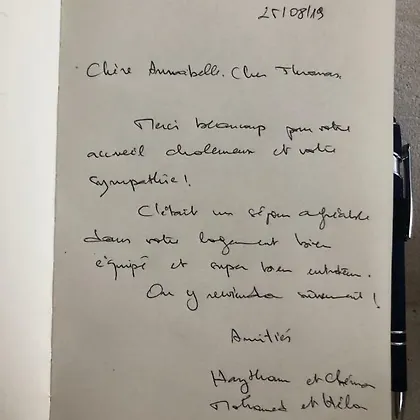 25/08/19
Chère Annabelle, Cher Thomas,
Merci beaucoup pour votre
accueil chaleureux et votre
sympathie!
C'était un séjour agréable
dans votre logement bien
équipé et super bien entretenu.
On y reviendra sûrement!
Amitiés
Haytham et
Mohamed et